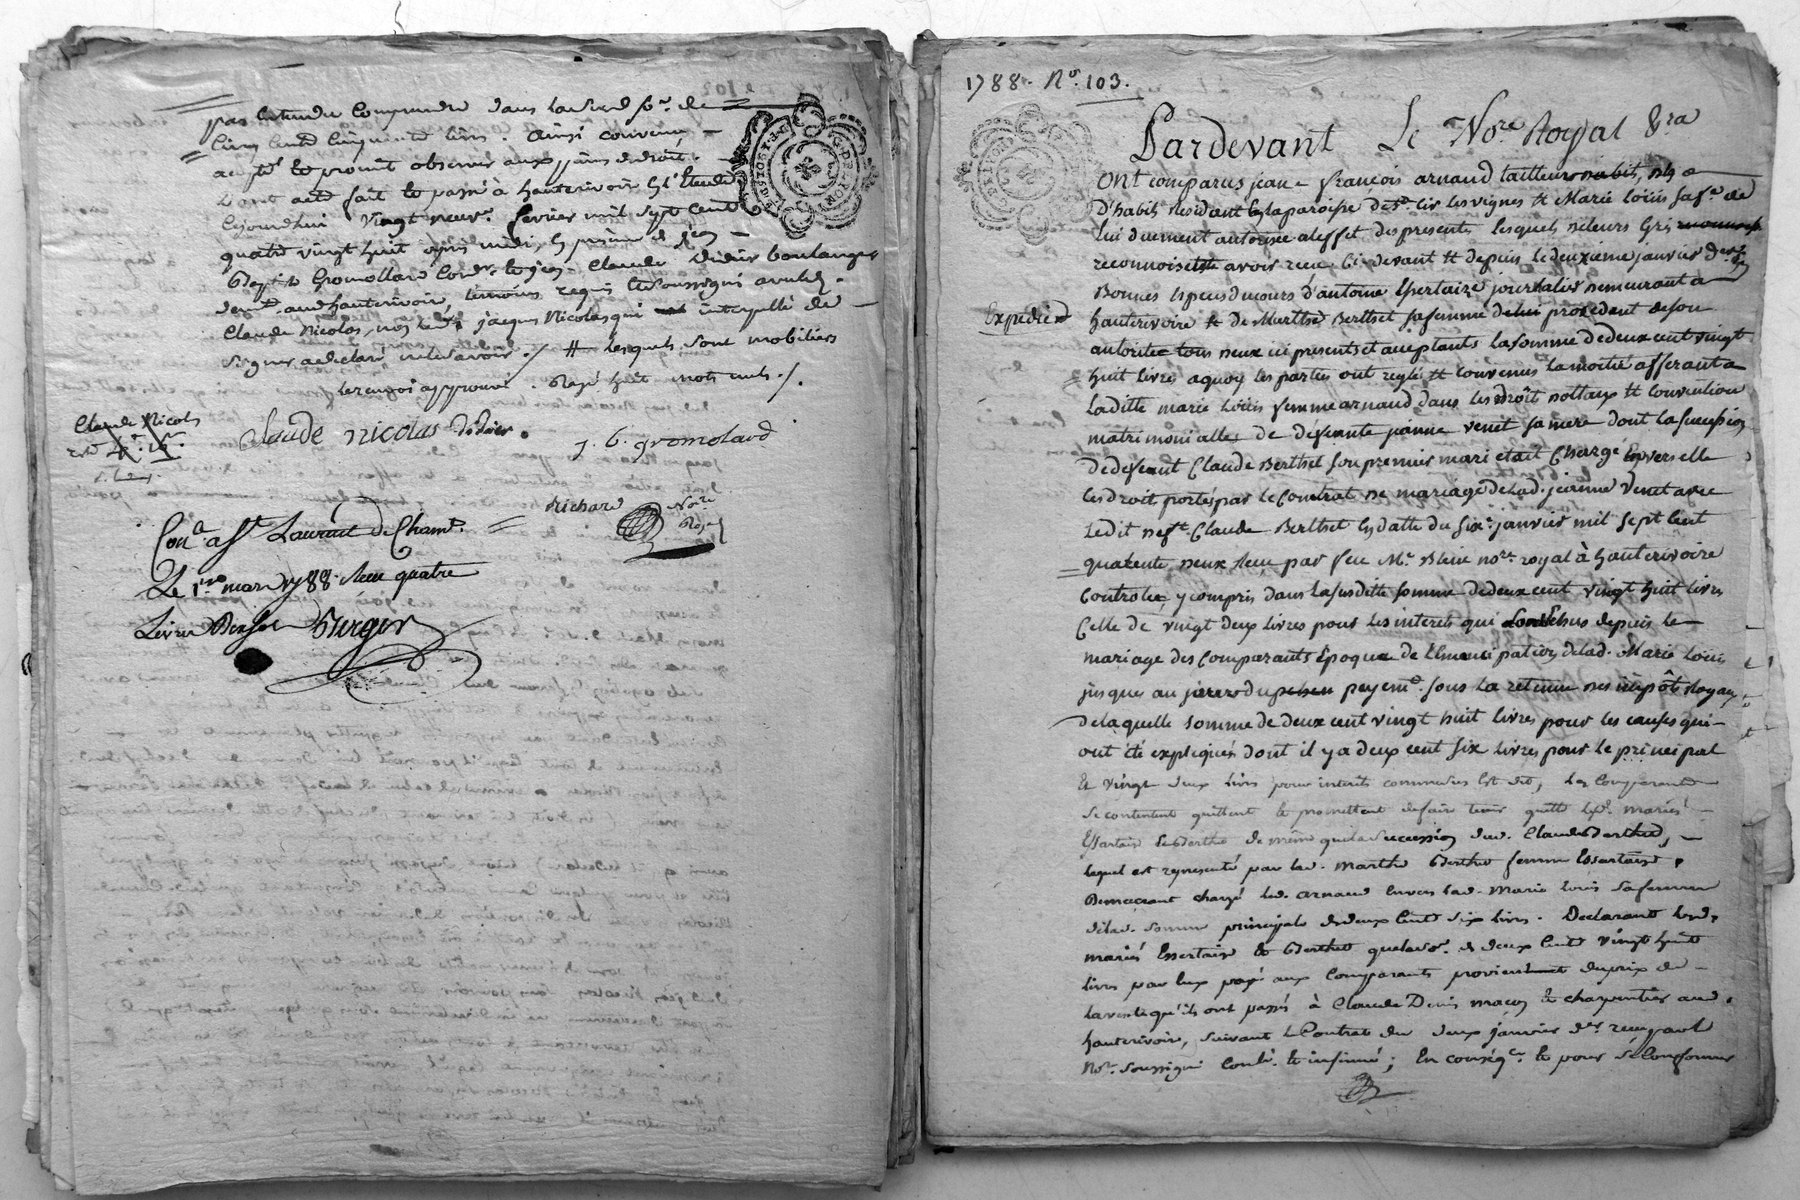 pas entendu Comprendre dans de
livres cent cinquante livres. ainsi convenu
accepté et promit observer aux peines de droit.
Dont acte fait et passé à hauterivoire En l'Etude
Cejourdhui vingt neuf fevrier mil sept cent
quatre vingt huit après midi, En présence de
Bapt. Gromollard et jean Claude Didier boulanger
demt. aud hauterivoire, témoins requis Et Soussignés avec led.
Claude Nicolas, non led. jacques Nicolas qui interpellé de
signer a declaré ne le savoir ./. # lesquels sont mobiliers
le renvoi approuvé. Rayé huit mots nuls ./.
Claude Nicolas
Claude Nicolas Didier.
J. B. gromolard
richard Nore
Royal
Con. a St. Laurent De Cham.
Le 1er mars 1788. Reçu quatre
Livres Berger
1788. No. 103.
Pardevant Le Nore. Royal &ra
ont comparus jean françois arnaud tailleur
D'habits Residant En la paroisse de St. Cir les vignes Et Marie Louis sa fe. de
lui duement autorisée a leffet des presentes lesquels de leurs Grés
reconnoissent avoir reçu Ci devant Et depuis le deuxieme janvier der.
Bonnes Especes du cours d'antoine Essertaize journalier demeurant a
Expédié
hauterivoire Et de Marthe Berthet sa femme de lui procedant de son
autorité tous deux ici presents et acceptants la somme de deux cent vingt
huit livres a quoy les parties ont reglé Et convenus la moitié afferant a
laditte marie Louis femme arnaud dans les droit dottaux Et convention
matrimonialles de deffunte jeanne venet sa mere dont la succession
de deffunt Claude Berthet son premier mari etait Chargé Envers elle
les droit portés par le Contrat de mariage de lad. jeanne Venet avec
Ledit deft. Claude Berthet En datte du six janvier mil sept cent
quarente deux Reçu par feu Me. Blein nore. royal à hauterivoire
Controlé, y compris dans la susditte somme de deux cent vingt huit livres
Celle de vingt deux livres pour les interets qui sont Echus depuis le
mariage des Comparants Epoque de l'Emancipation de lad. Marie Louis
jusques au jour du peyemt. sous la retenue des impôts Royaux
de laquelle somme de deux cent vingt huit livres pour les causes qui
ont été expliqués dont il y a deux cent six livres pour le principal
Et vingt deux livres pour interets comme dit Est dit, les Comparants
se contentent quittent et promettent de faire tenir quitte lesd. mariés
Essartaize et Berthet de même que la succession dud. Claude Berthet,
lequel est representé par lad. Marthe Berthet femme Essartaize,
Demeurant chargé led. arnaud Envers lad. Marie Louis sa femme
de lad. somme principale de deux cent six livres. Declarant lesd.
mariés Essertaize et Berthet que lad. so. de deux cent vingt huit
livres par Eux payé aux Comparants provient du prix de
la vente qu'ils ont passés à Claude Denis maçon & charpentier aud.
hauterivoire, suivant le Contrat du deux janvier der. recepvant
Nore. soussigné Conlé. et insinué; En conséqce. et pour se Conformer